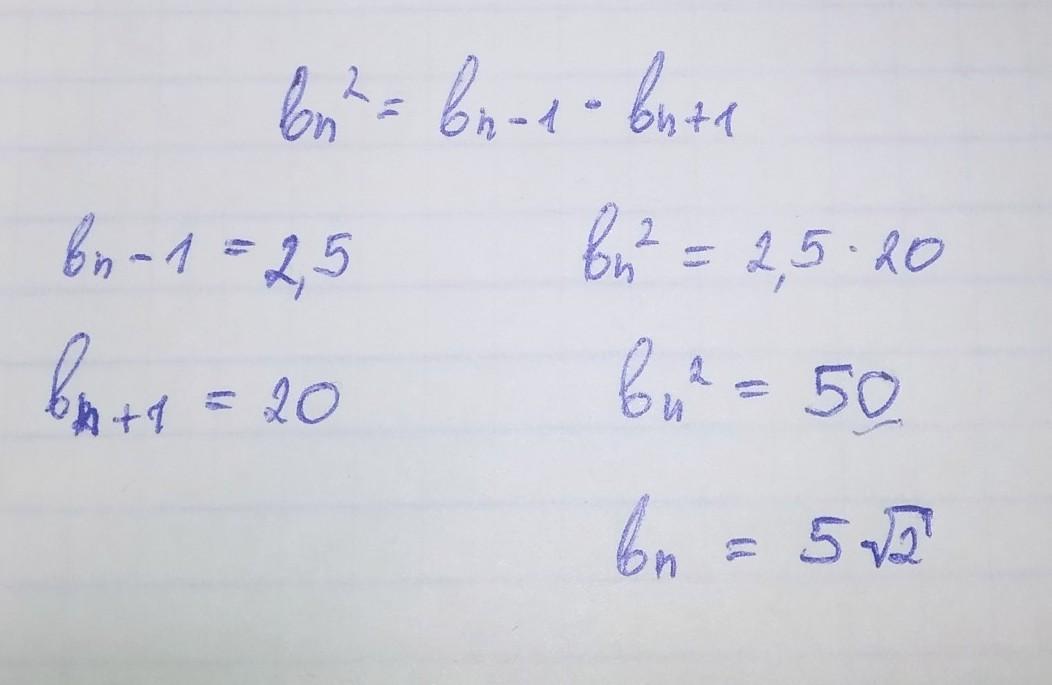 bn² = bn-1 · bn+1
bn-1 = 2,5
bn² = 2,5 · 20
bn+1 = 20
bn² = 50
bn = 5√2